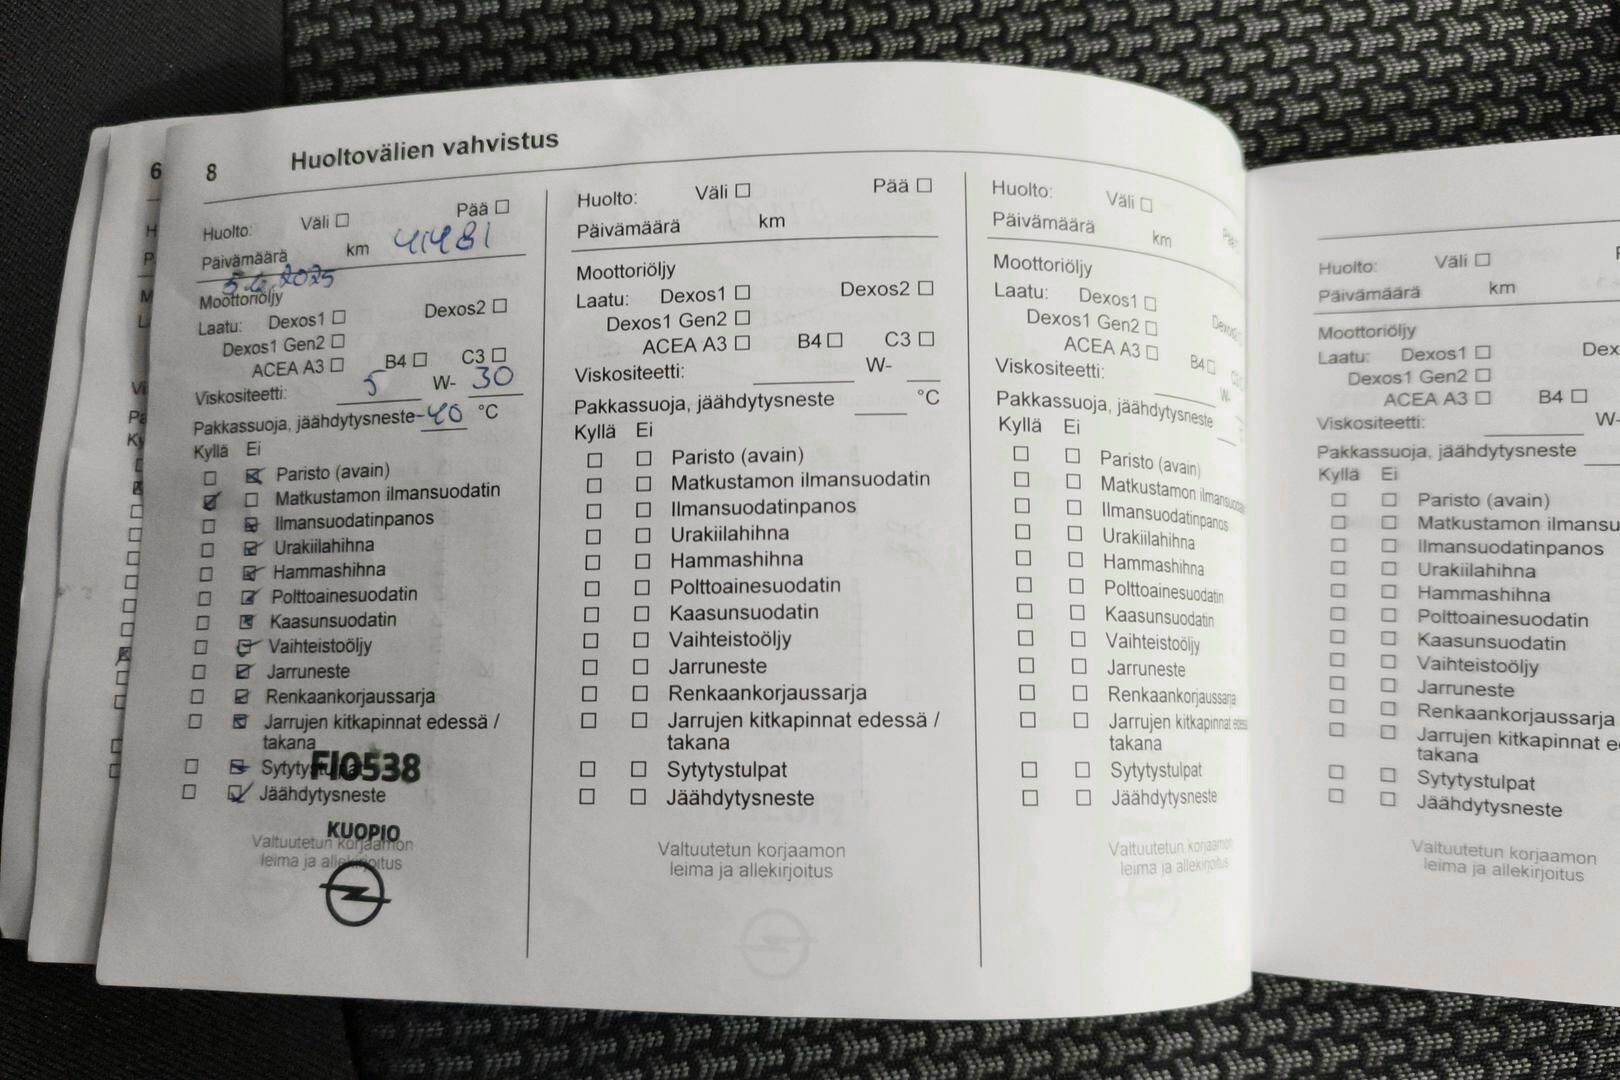 6
8 Huoltovälien vahvistus
Huolto: Väli ☐ Pää ☐
Päivämäärä km 41481
5.6.2025
Moottoriöljy
Laatu: Dexos1 ☐ Dexos2 ☐
Dexos1 Gen2 ☐
ACEA A3 ☐ B4 ☐ C3 ☐
Viskositeetti: 5 W- 30
Pakkassuoja, jäähdytysneste -40 °C
Kyllä Ei
☐ ☒ Paristo (avain)
☒ ☐ Matkustamon ilmansuodatin
☐ ☒ Ilmansuodatinpanos
☐ ☒ Urakiilahihna
☐ ☒ Hammashihna
☐ ☒ Polttoainesuodatin
☐ ☒ Kaasunsuodatin
☐ ☒ Vaihteistoöljy
☐ ☒ Jarruneste
☐ ☒ Renkaankorjaussarja
☐ ☒ Jarrujen kitkapinnat edessä /
takana
☐ ☒ Sytytystulpat
FI0538
☐ ☒ Jäähdytysneste
KUOPIO
Valtuutetun korjaamon
leima ja allekirjoitus
Huolto: Väli ☐ Pää ☐
Päivämäärä km
Moottoriöljy
Laatu: Dexos1 ☐ Dexos2 ☐
Dexos1 Gen2 ☐
ACEA A3 ☐ B4 ☐ C3 ☐
Viskositeetti: W-
Pakkassuoja, jäähdytysneste °C
Kyllä Ei
☐ ☐ Paristo (avain)
☐ ☐ Matkustamon ilmansuodatin
☐ ☐ Ilmansuodatinpanos
☐ ☐ Urakiilahihna
☐ ☐ Hammashihna
☐ ☐ Polttoainesuodatin
☐ ☐ Kaasunsuodatin
☐ ☐ Vaihteistoöljy
☐ ☐ Jarruneste
☐ ☐ Renkaankorjaussarja
☐ ☐ Jarrujen kitkapinnat edessä /
takana
☐ ☐ Sytytystulpat
☐ ☐ Jäähdytysneste
Valtuutetun korjaamon
leima ja allekirjoitus
Huolto: Väli ☐
Päivämäärä km
Moottoriöljy
Laatu: Dexos1 ☐
Dexos1 Gen2 ☐
ACEA A3 ☐ B4 ☐
Viskositeetti: W-
Pakkassuoja, jäähdytysneste
Kyllä Ei
☐ ☐ Paristo (avain)
☐ ☐ Matkustamon
☐ ☐ Ilmansuodatinpanos
☐ ☐ Urakiilahihna
☐ ☐ Hammashihna
☐ ☐ Polttoainesuodatin
☐ ☐ Kaasunsuodatin
☐ ☐ Vaihteistoöljy
☐ ☐ Jarruneste
☐ ☐ Renkaankorjaussarja
☐ ☐ Jarrujen kitkapinnat
takana
☐ ☐ Sytytystulpat
☐ ☐ Jäähdytysneste
Valtuutetun korjaamon
leima ja allekirjoitus
Huolto: Väli ☐
Päivämäärä km
Moottoriöljy
Laatu: Dexos1 ☐ Dex
Dexos1 Gen2 ☐
ACEA A3 ☐ B4 ☐
Viskositeetti: W-
Pakkassuoja, jäähdytysneste
Kyllä Ei
☐ ☐ Paristo (avain)
☐ ☐ Matkustamon ilmansu
☐ ☐ Ilmansuodatinpanos
☐ ☐ Urakiilahihna
☐ ☐ Hammashihna
☐ ☐ Polttoainesuodatin
☐ ☐ Kaasunsuodatin
☐ ☐ Vaihteistoöljy
☐ ☐ Jarruneste
☐ ☐ Renkaankorjaussarja
☐ ☐ Jarrujen kitkapinnat
takana
☐ ☐ Sytytystulpat
☐ ☐ Jäähdytysneste
Valtuutetun korjaamon
leima ja allekirjoitus